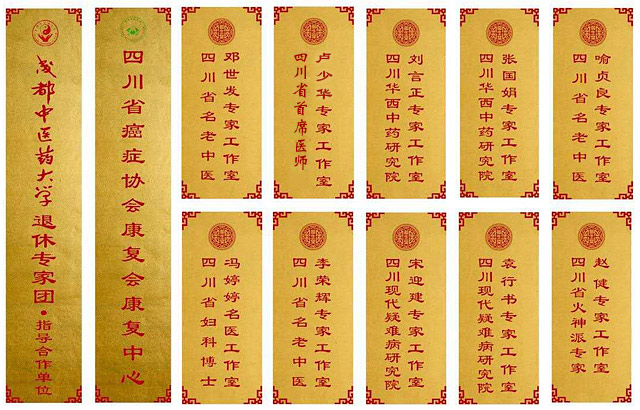 成都中医药大学退休专家团·指导合作单位
四川省癌症协会康复会康复中心
邓世发专家工作室
四川省名老中医
卢少华专家工作室
四川省首席医师
刘言正专家工作室
四川华西中药研究院
张国娟专家工作室
四川华西中药研究院
喻贞良专家工作室
四川省名老中医
冯婷婷名医工作室
四川省妇科博士
李荣辉专家工作室
四川省名老中医
宋迎建专家工作室
四川现代疑难病研究院
袁行书专家工作室
四川现代疑难病研究院
赵健专家工作室
四川省火神派专家